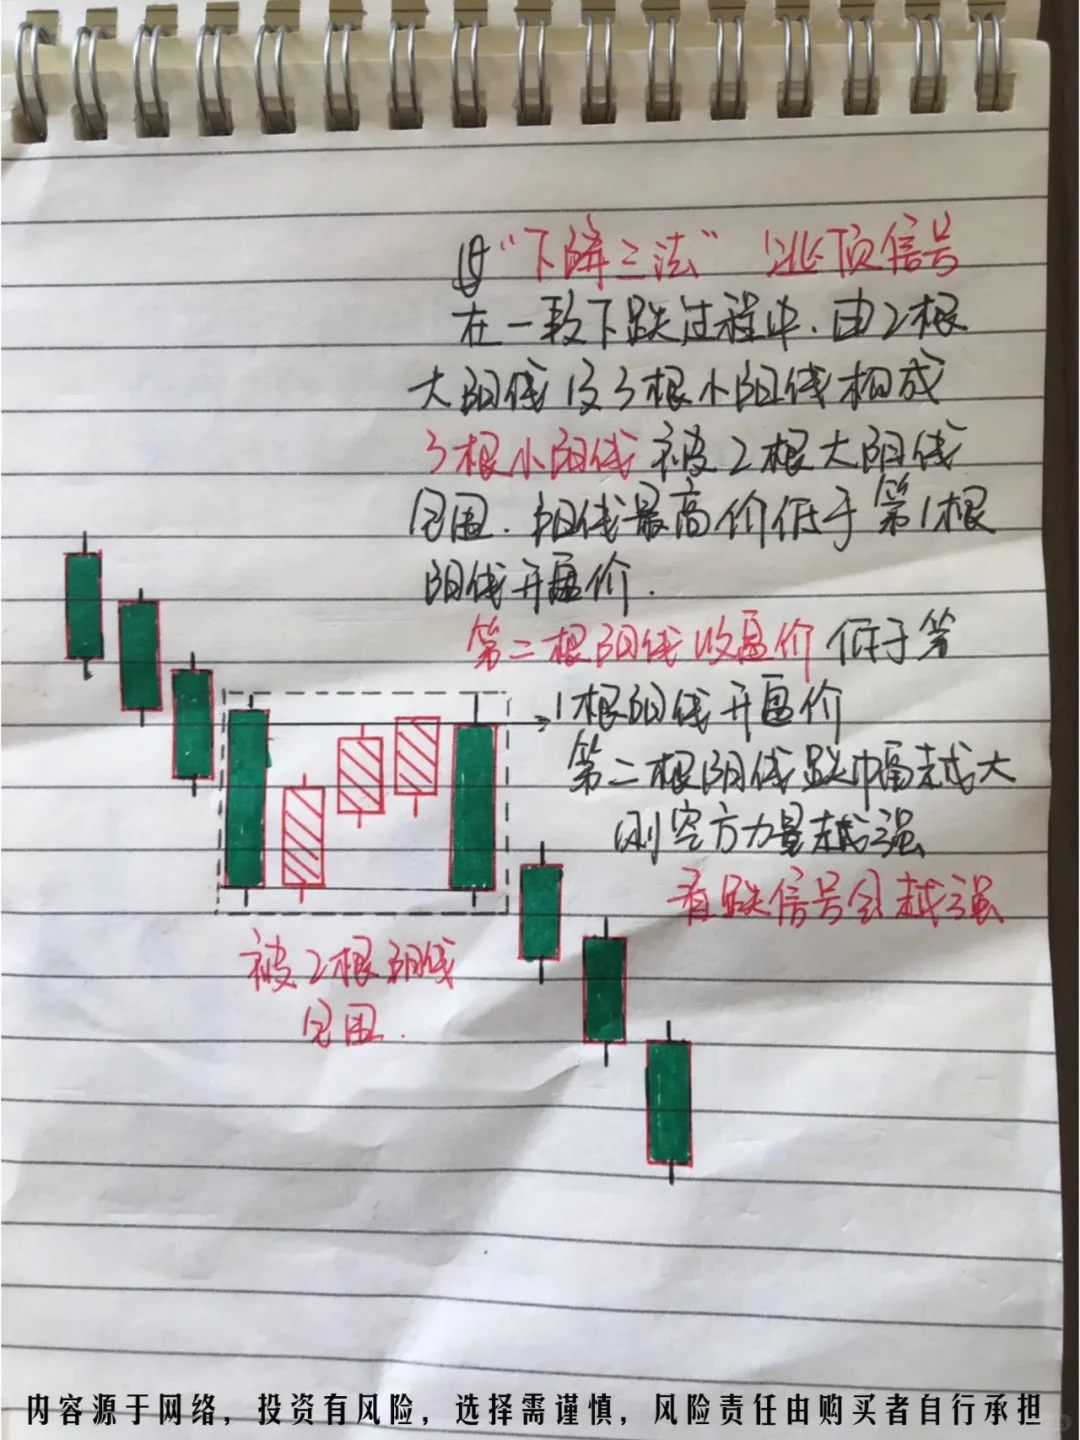 “下降三法”逃顶信号
在一致下跌过程中.由2根
大阴线及3根小阳线构成
3根小阳线被2根大阴线
包围.阳线最高价低于第1根
阴线开盘价.
第二根阴线收盘价低于第
1根阴线开盘价
第二根阴线跌幅越大
则空方力量越强
看跌信号会越强
被2根阴线
包围.
内容源于网络，投资有风险，选择需谨慎，风险责任由购买者自行承担